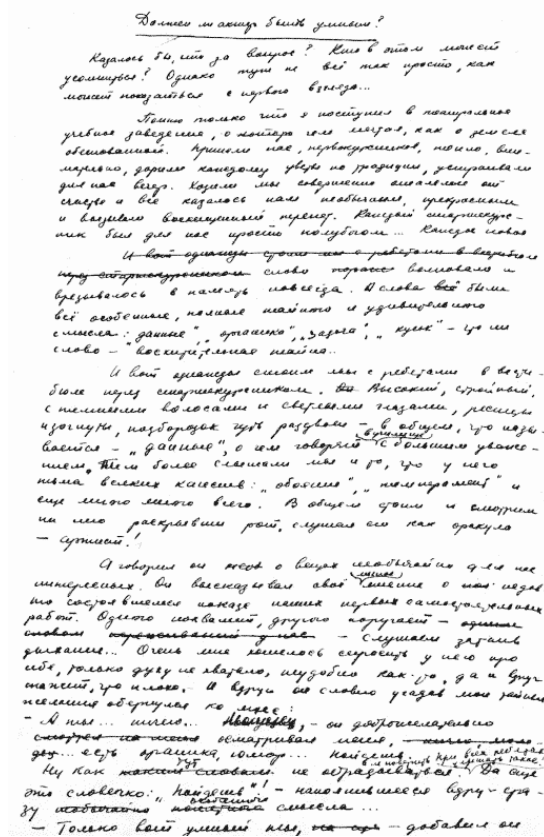 Должен ли актер быть умным?
Казалось бы, что за вопрос? Кто в этом может
усомниться? Однако тут не всё так просто, как
может показаться с первого взгляда...
Помню только что я поступил в театральное
учебное заведение, о котором мечтал, как о земле
обетованной. Приняли нас, первокурсников, тепло, вни-
мательно, дарили каждому цветы по традиции, устраивали
для нас вечер. Ходили мы совершенно ошалелые от
счастья и всё казалось нам необычным, прекрасным
и вызывало восхищенный трепет. Каждый старшекурс-
ник был для нас просто полубогом... Каждое новое
И вот однажды стоим мы с ребятами в вестибюле
перед старшекурсником слово волновало и
врезывалось в память навсегда. А слова всё были
всё особенные, полные тайного и удивительного
смысла: "данные", "органика", "задача", "кусок" - что ни
слово - восхитительная тайна...
И вот однажды стоим мы с ребятами в вести-
бюле перед старшекурсником. Он Высокий, стройный,
с темными волосами и светлыми глазами, ресницы
изогнуты, подбородок чуть раздвоен - в общем, что назы-
вается - "данные", о чем говорят в училище с большим уваже-
нием. Тем более слышали мы и то, что у него
тьма всяких качеств: "обаяние", "темперамент" и
еще много много всего. В общем стоим и смотрим
на него раскрывши рот, слушая его как оракула
- артист!
А говорил он о вещах необычайно для нас
интересных. Он высказывал своё личное мнение о недав
но состоявшемся показе наших первых самостоятельных
работ. Одного похвалит, другого поругает -
- слушаем затаив
дыхание... Очень мне хотелось спросить у него про
себя, только духу не хватало, неудобно как-то, да и вдруг
скажет, что плохо. И вдруг он словно угадав мои тайные
желания обернулся ко мне:
- А ты... ничего... , - он доброжелательно
смотрел на меня осматривал меня,
есть органика, юмор... Найдешь
Ну как тут не обрадоваться. Да еще
это словечко: "Найдешь"! - наполнившееся вдруг сра-
зу особого смысла...
- Только вот умный ты, - добавил он